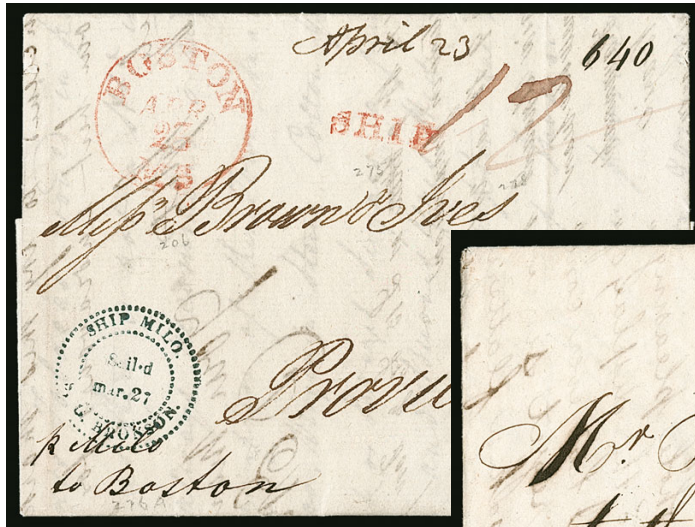 April 23
640
BOSTON
APR
SHIP
12
275
Messrs Brown & Ives
206
SHIP MILO
Sail.d
mar.27
BRONSON
Provi
p Milo
to Boston
Mr